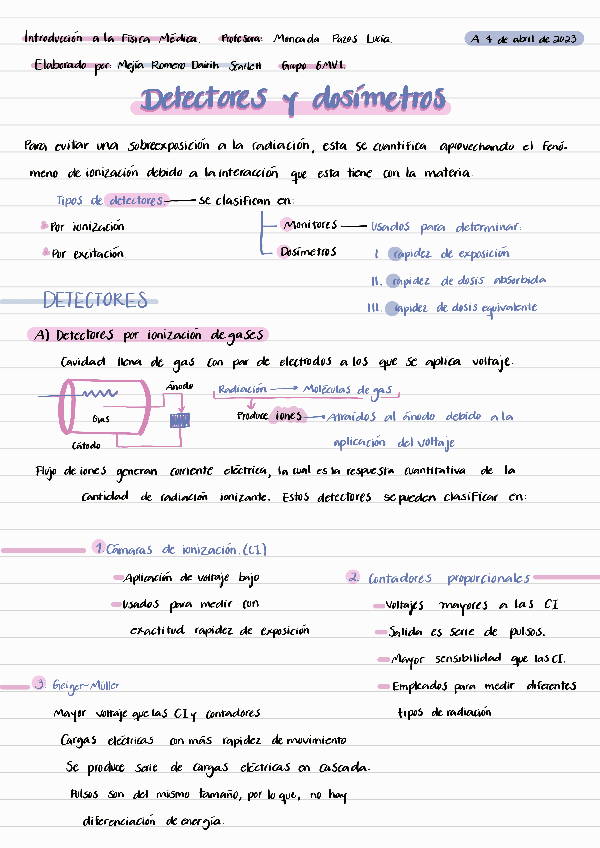 Introducción a la Física Médica. Profesora: Moncada Pazos Lucía. A 4 de abril de 2023
Elaborado por: Mejía Romero Dairith Scarlett Grupo 6MV1.
Detectores y dosímetros
Para evitar una sobreexposición a la radiación, esta se cuantifica aprovechando el fenó-
meno de ionización debido a la interacción que esta tiene con la materia.
Tipos de detectores se clasifican en:
Por ionización
Por excitación
Monitores Usados para determinar:
Dosímetros
I. rapidez de exposición
II. rapidez de dosis absorbida
III. rapidez de dosis equivalente
DETECTORES
A) Detectores por ionización de gases
Cavidad llena de gas con par de electrodos a los que se aplica voltaje.
Ánodo
Gas
Cátodo
Radiación → Moléculas de gas
Produce iones → Atraídos al ánodo debido a la
aplicación del voltaje
Flujo de iones generan corriente eléctrica, la cual es la respuesta cuantitativa de la
cantidad de radiación ionizante. Estos detectores se pueden clasificar en:
1. Cámaras de ionización. (CI)
Aplicación de voltaje bajo
Usados para medir con
exactitud rapidez de exposición
2. Contadores proporcionales
Voltajes mayores a las CI
Salida es serie de pulsos.
Mayor sensibilidad que las CI.
Empleados para medir diferentes
tipos de radiación
3. Geiger-Müller
Mayor voltaje que las CI y contadores
Cargas eléctricas con más rapidez de movimiento
Se produce serie de cargas eléctricas en cascada.
Pulsos son del mismo tamaño, por lo que, no hay
diferenciación de energía.